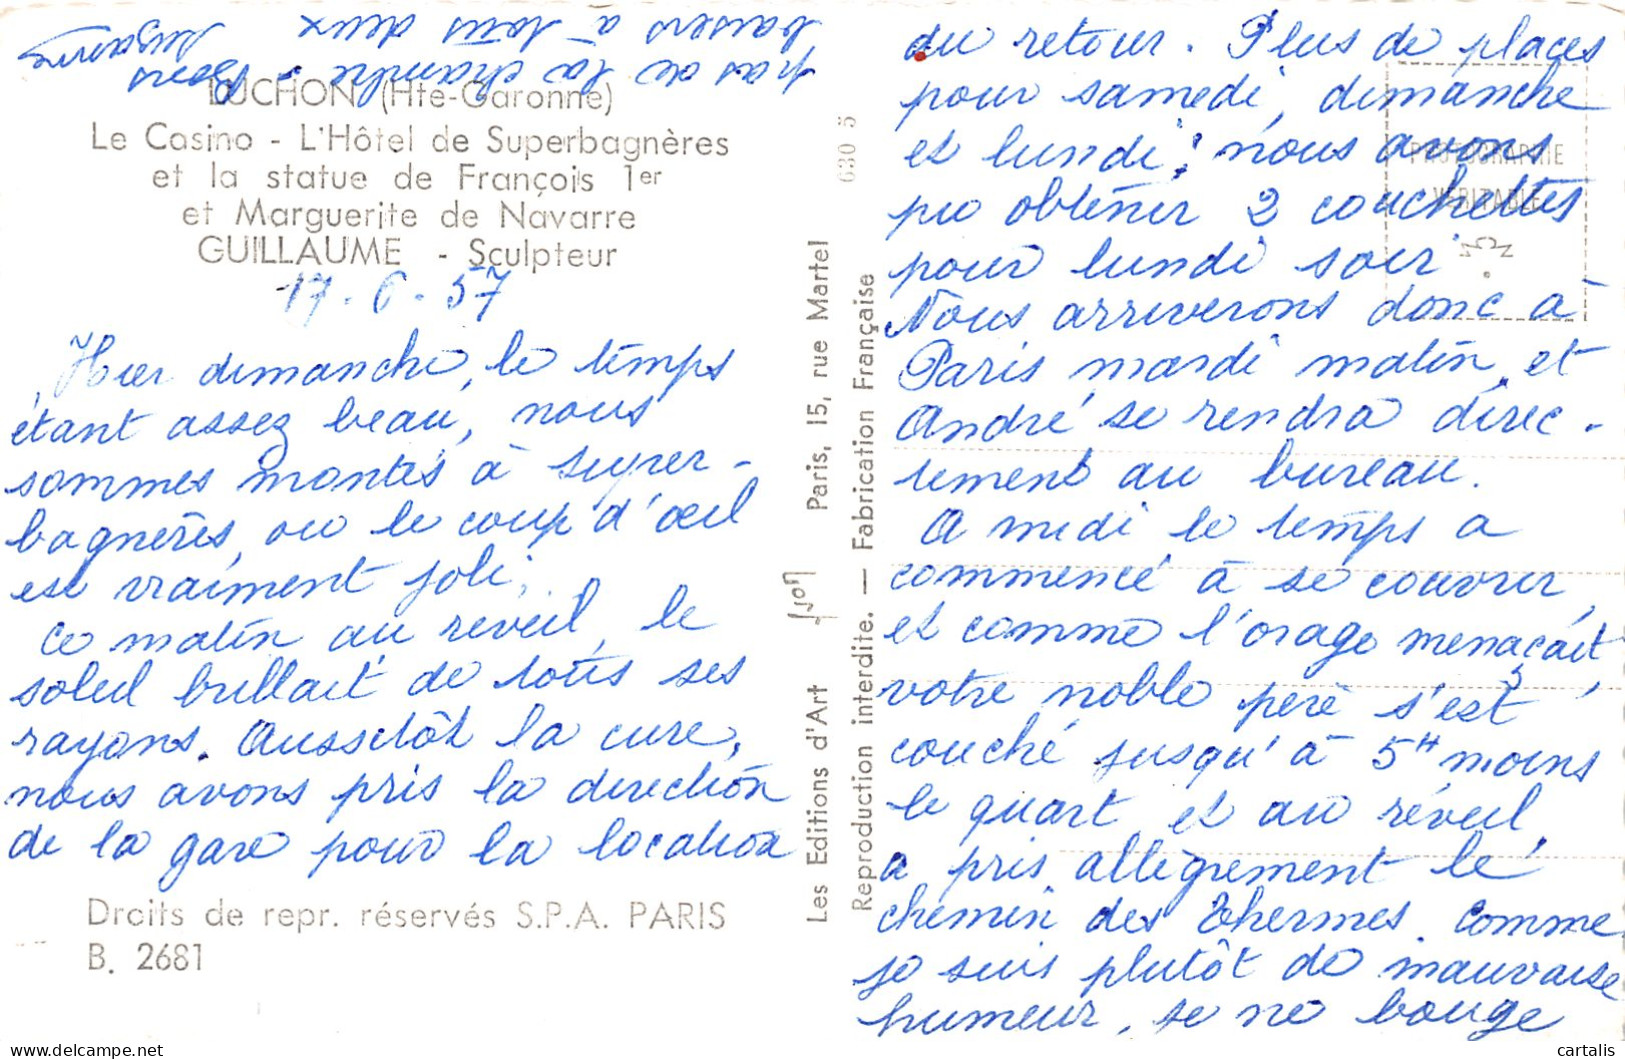 LUCHON (Hte-Garonne)
Le Casino - L'Hôtel de Superbagnères
et la statue de François 1er
et Marguerite de Navarre
GUILLAUME - Sculpteur
17-6-57
Hier dimanche, le temps
étant assez beau, nous
sommes montés à Super-
bagnères, ou le coup d'œil
est vraiment joli.
Ce matin au réveil, le
soleil brillait de tous ses
rayons. Aussitôt la cure,
nous avons pris la direction
de la gare pour la location
du retour. Plus de places
pour samedi, dimanche
et lundi; nous avons
pu obtenir 2 couchettes
pour lundi soir.
Nous arriverons donc à
Paris mardi matin, et
André se rendra direc-
tement au bureau.
A midi le temps a
commencé à se couvrir,
et comme l'orage menaçait,
votre noble père s'est
couché jusqu'à 5H moins
le quart et au réveil,
a pris allègrement le
chemin des Thermes. Comme
je suis plutôt de mauvaise
humeur, je ne bouge
pas de la chambre. Bons
baisers à tous deux
Suzanne
Droits de repr. réservés S.P.A. PARIS
B. 2681
Les Editions d'Art yvon Paris, 15, rue Martel
Reproduction interdite. — Fabrication Française
630 5
PHOTOGRAPHIE
VÉRITABLE
delcampe.net
cartalis